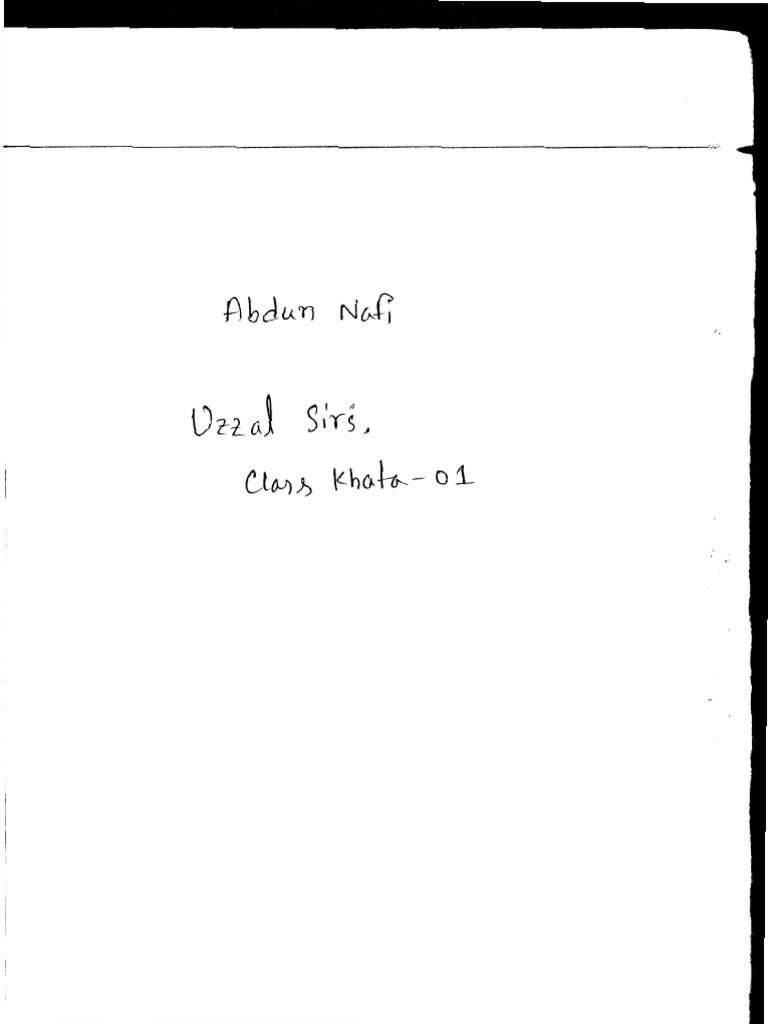 Abdun Nafi
Uzzal Sir's,
Class Khata-01